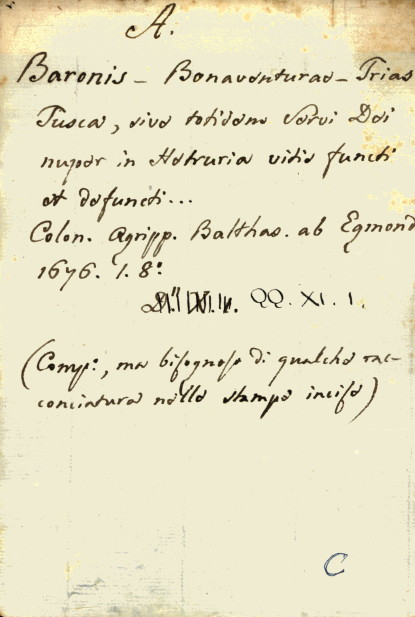 A.
Baronis - Bonaventurae - Trias
Tusca, sive totidem Servi Dei
nuper in Hetruria vitis functi
et defuncti...
Colon. Agripp. Balthas. ab Egmond
1676. 1. 8º.
QQ. XI. 1.
(Comp:, ma bisognosa di qualche rac-
conciatura nelle stampe incise)
C